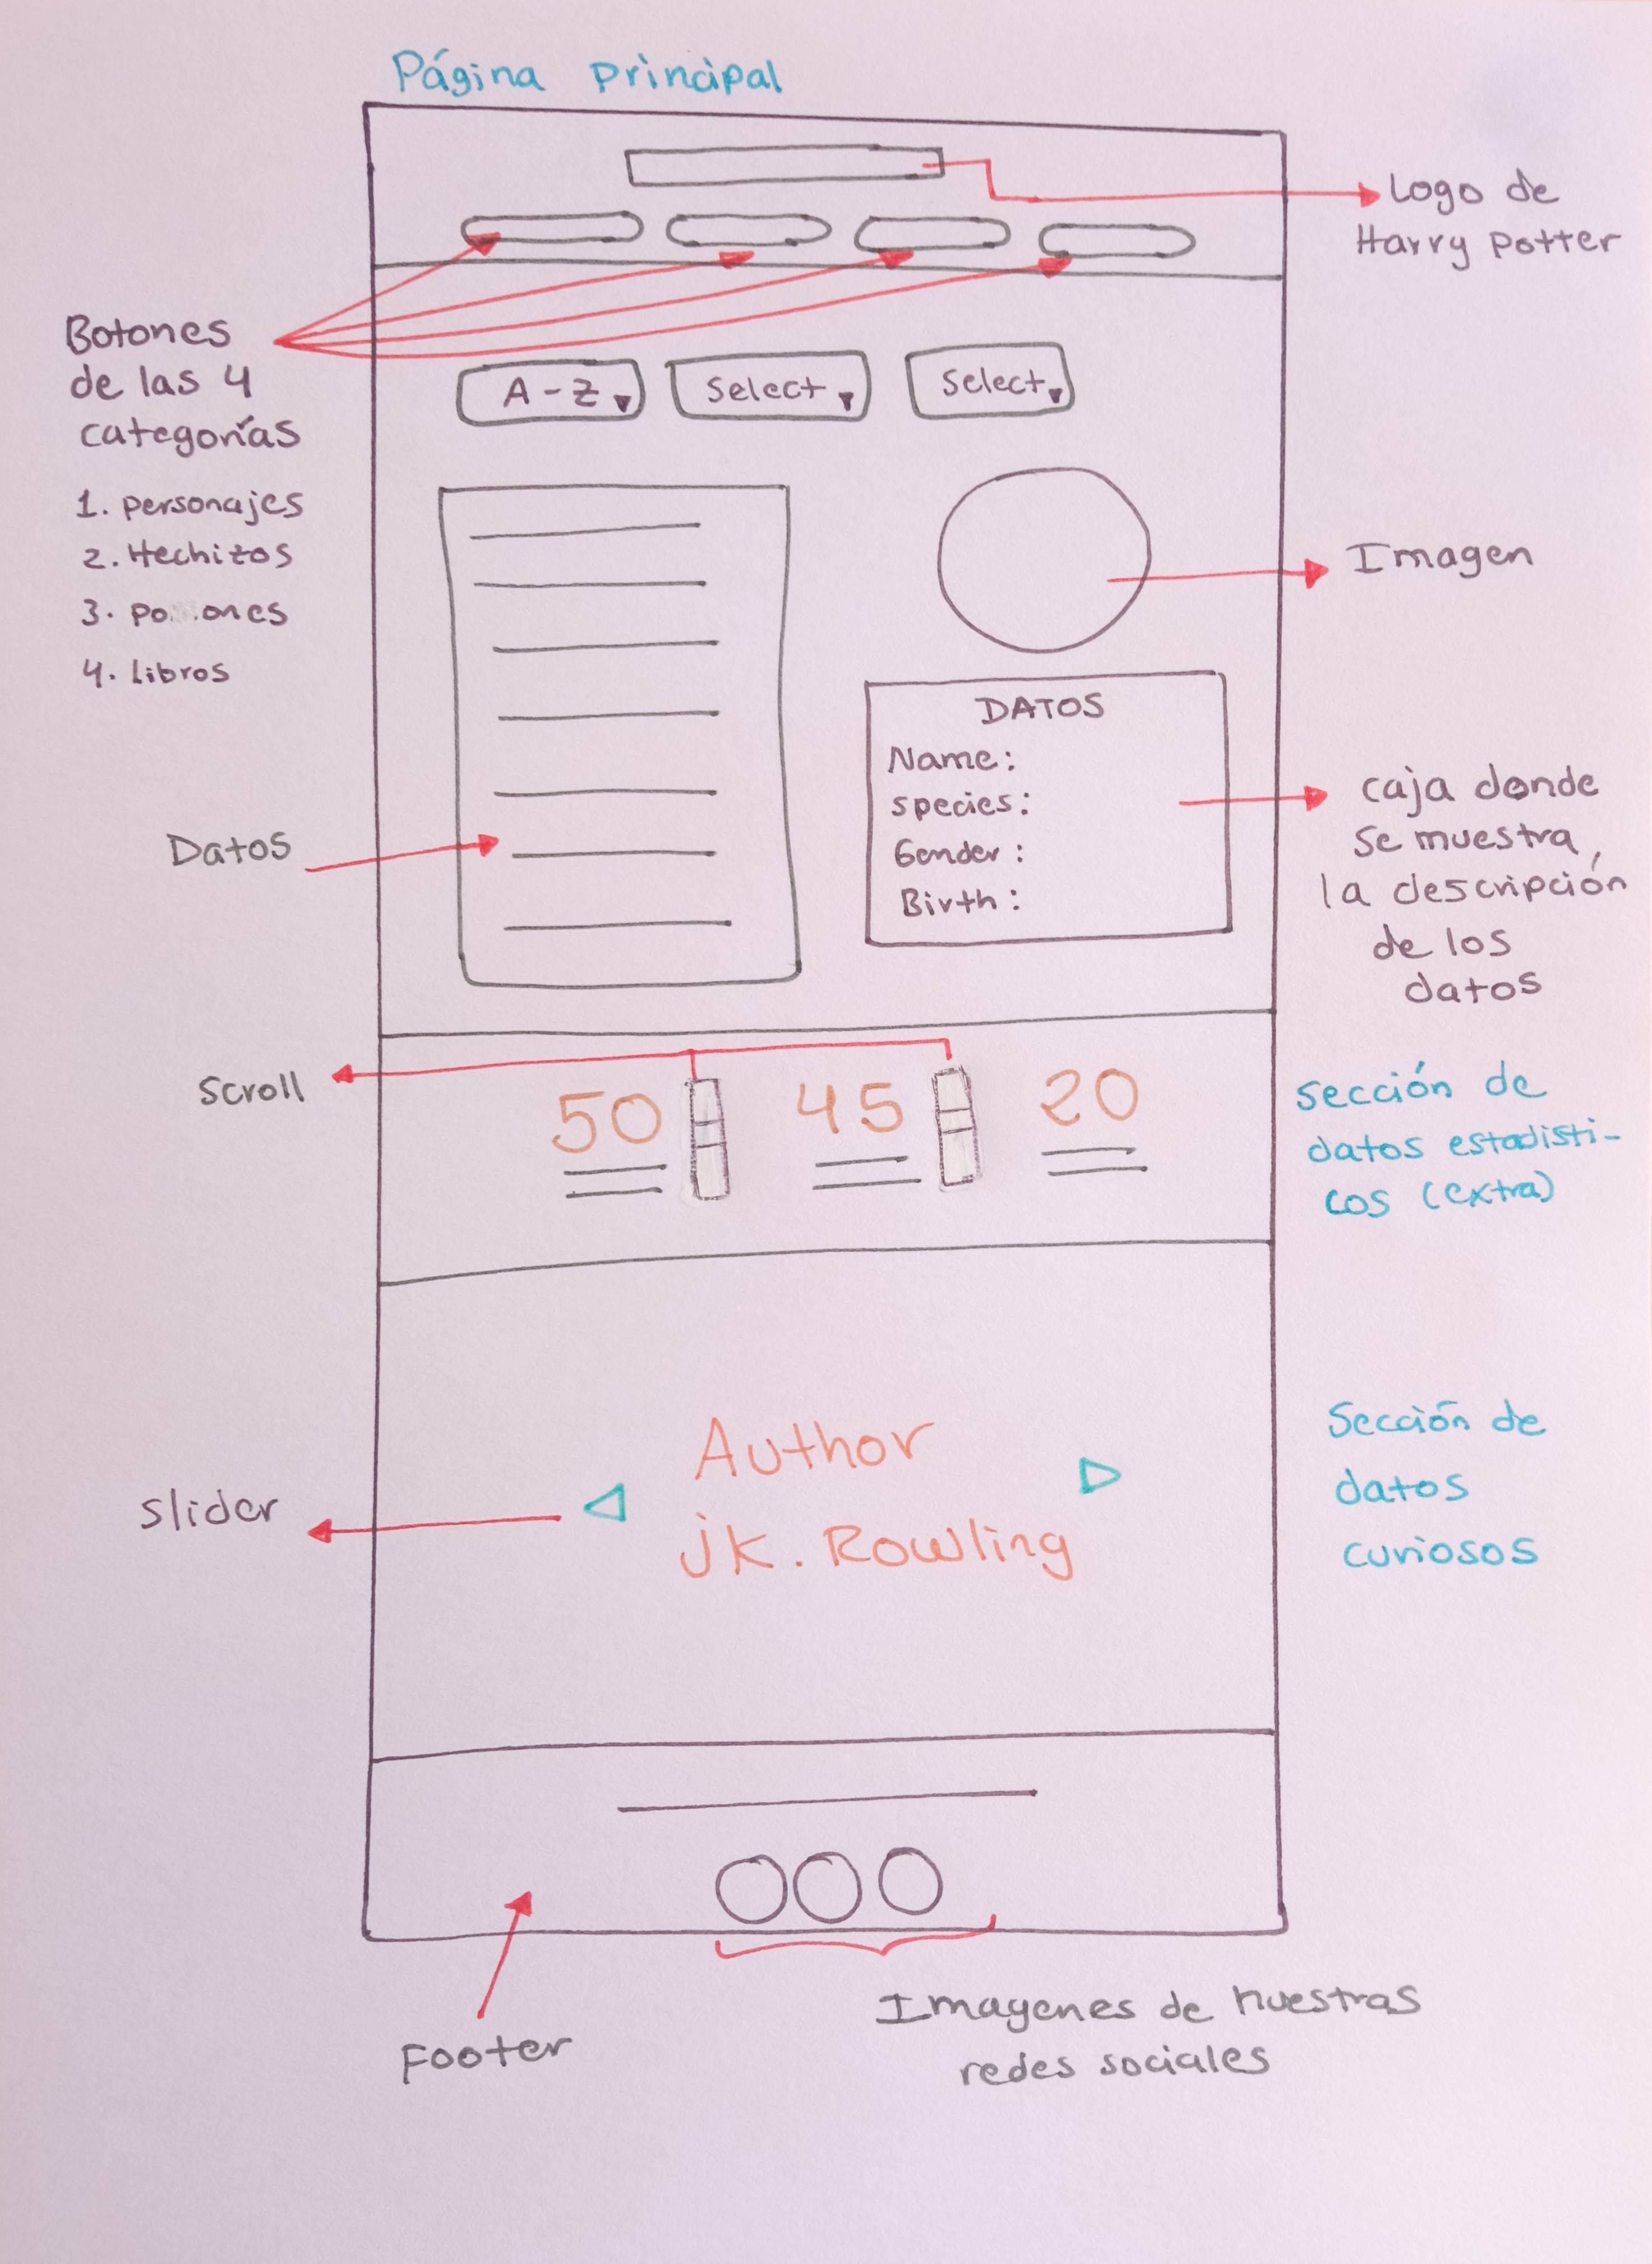 Página principal
Logo de
Harry Potter
Botones
de las 4
categorías
1. personajes
2. Hechizos
3.
4. libros
A-Z
Select
Select
Imagen
DATOS
Name:
species:
Gender:
Birth:
Datos
caja donde
se muestra
la descripción
de los
datos
scroll
50
45
20
sección de
datos estadisti-
cos (extra)
Author
jk. Rowling
slider
Sección de
datos
curiosos
Footer
Imagenes de nuestras
redes sociales